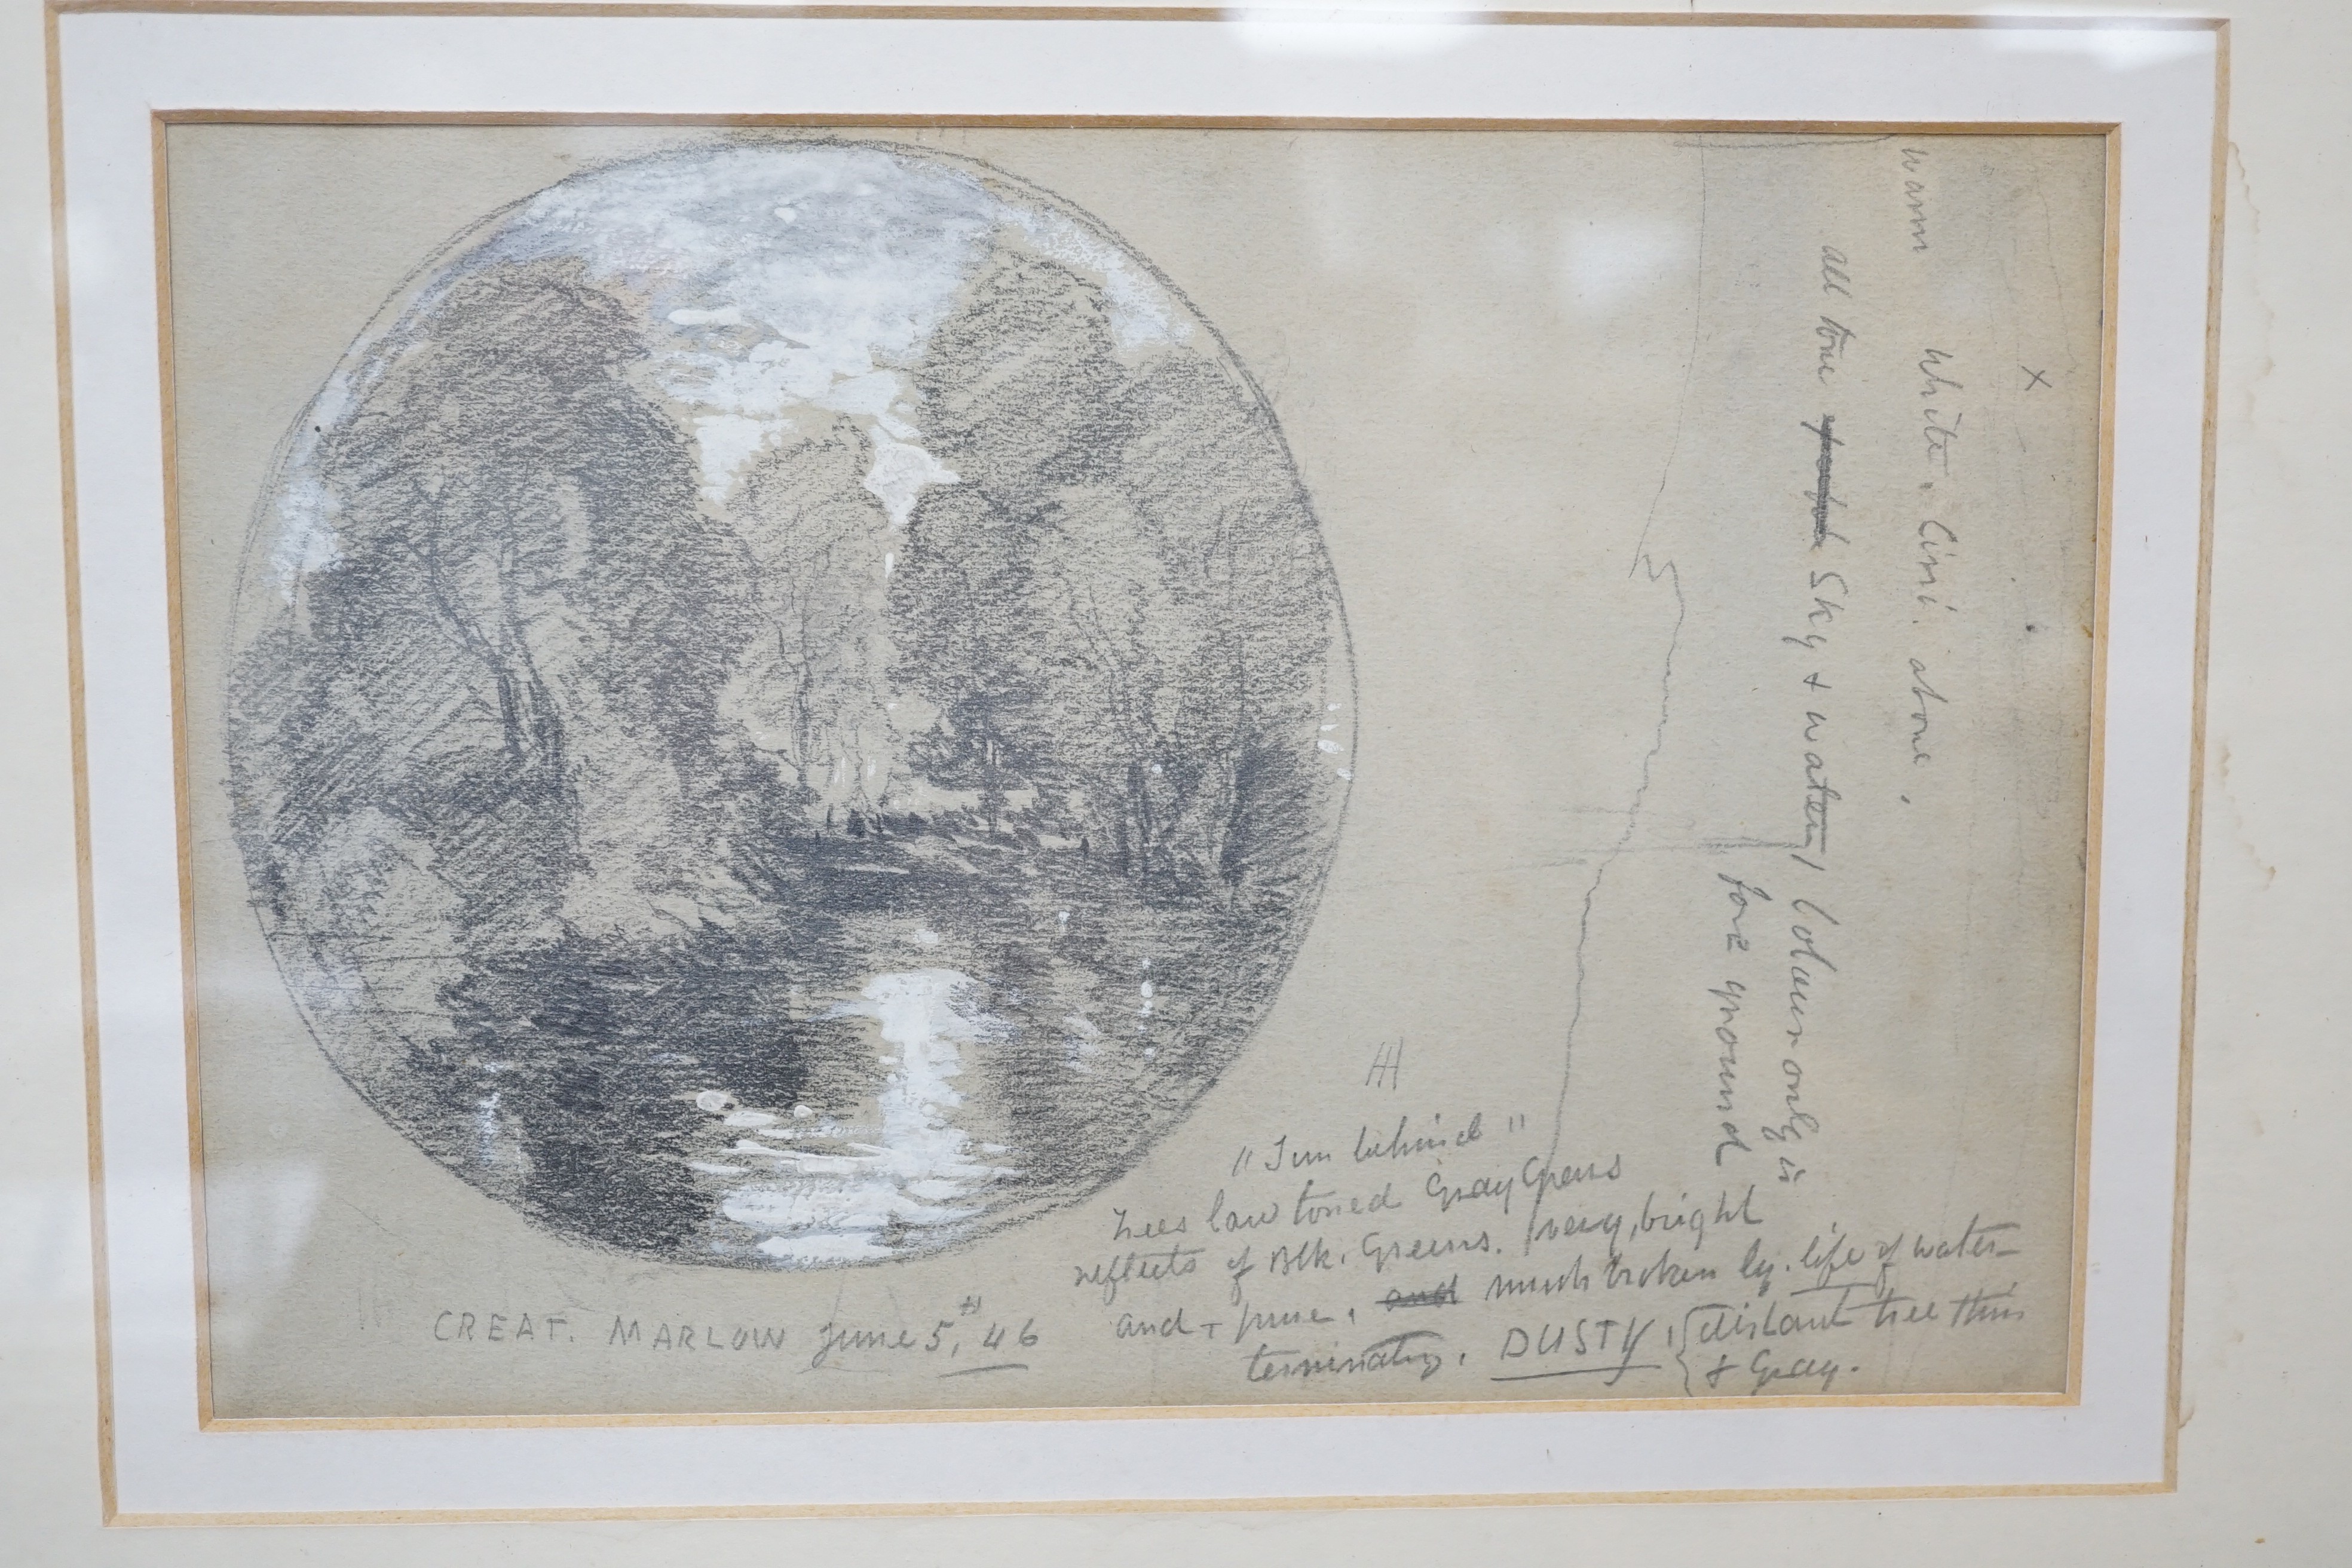 warm white. Cirri. above.
all tone Sky + water / Colour only is
fore ground
"Sun behind"
trees low toned Gray Greens
reflects of Blk. Greens. / very, bright
and - pure, and much broken by. life of water -
terminating. DUSTY, { distant tree thin
& Gray.
CREAT. MARLOW June 5,th 46